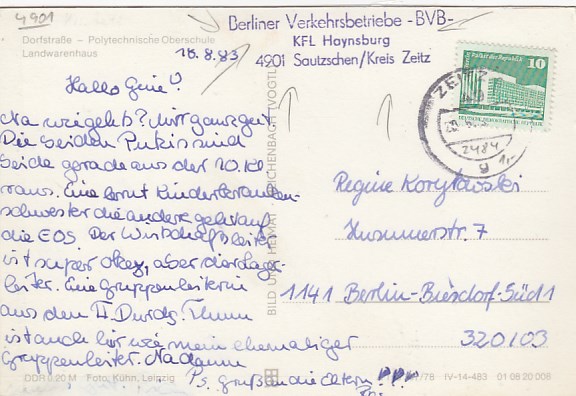 4901
Dorfstraße – Polytechnische Oberschule
Landwarenhaus
Berliner Verkehrsbetriebe -BVB-
KFL Haynsburg
4901 Sautzschen/Kreis Zeitz
10
Palast der Republik
ZEITZ
2484
g
16.8.83
Hallo Gine!
Na wie geht's? Mir ganz gut
Die beiden sind
beide gerade aus der 10. Kl
raus. Eine lernt Kinderkranken-
schwester die andere geht auf
die EOS. Der Wirtschaftsleiter
ist super okay, aber der Lager-
leiter. Eine Gruppenleiterin
aus dem II. Durchg.
ist auch hier wie mein ehemaliger
Gruppenleiter. Na dann
Ps. Grüß an die Eltern
Regine
Husumerstr. 7
1141 Berlin-Biesdorf-Süd 1
320/03
BILD UND HEIMAT REICHENBACH (VOGTL)
DDR 0,20 M Foto: Kühn, Leipzig
/78 IV-14-483 01 08 20 008